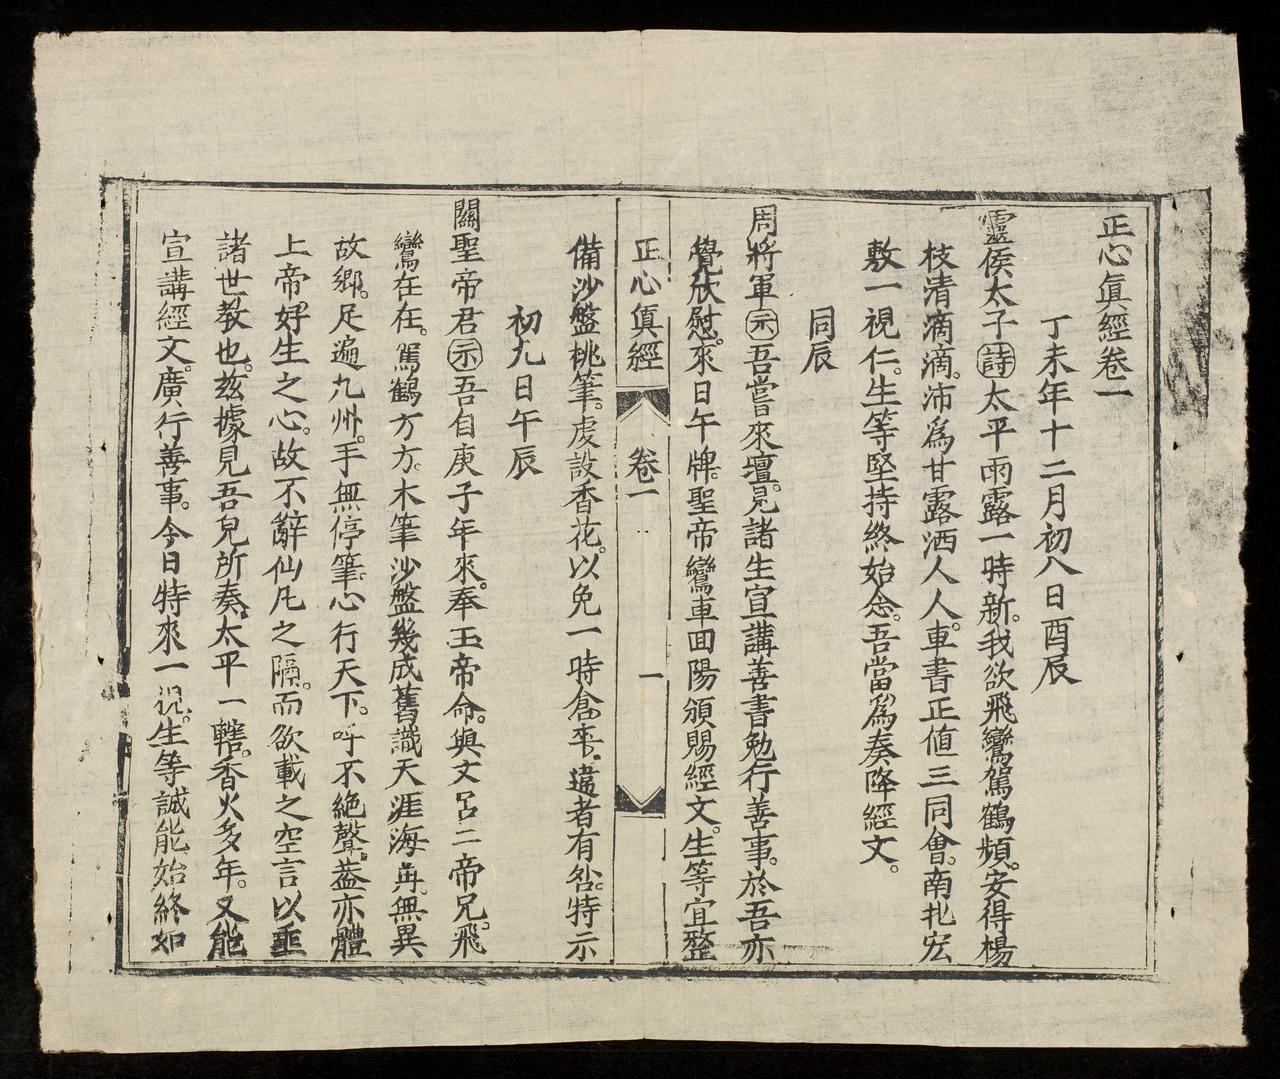 正心眞經卷一
丁未年十二月初八日酉辰
靈侯太子詩太平雨露一時新。我欲飛鸞駕鶴頻。安得楊
枝清滴滴。沛爲甘露洒人人。車書正値三同會。南札宏
敷一視仁。生等堅持終始念。吾當爲奏降經文。
同辰
周將軍示吾嘗來壇。見諸生宣講善書勉行善事。於吾亦
覺欣慰。來日午牌。聖帝鸞車囬陽頒賜經文。生等宜整
正心眞經
卷一
一
備沙盤桃筆。虔設香花。以免一時倉卒。違者有咎。特示
初九日午辰
關聖帝君示吾自庚子年來。奉玉帝命。與文呂二帝兄。飛
鸞在在。駕鶴方方。木筆沙盤幾成舊識天涯海角。無異
故鄉。足遍九州。手無停筆。心行天下。呼不絶聲。葢亦體
上帝。好生之心。故不辭仙凡之隔。而欲載之空言以垂
諸世教也。茲據見吾兒所奏太平一轄。香火多年。又能
宣講經文。廣行善事。今日特來一視。生等誠能始終如